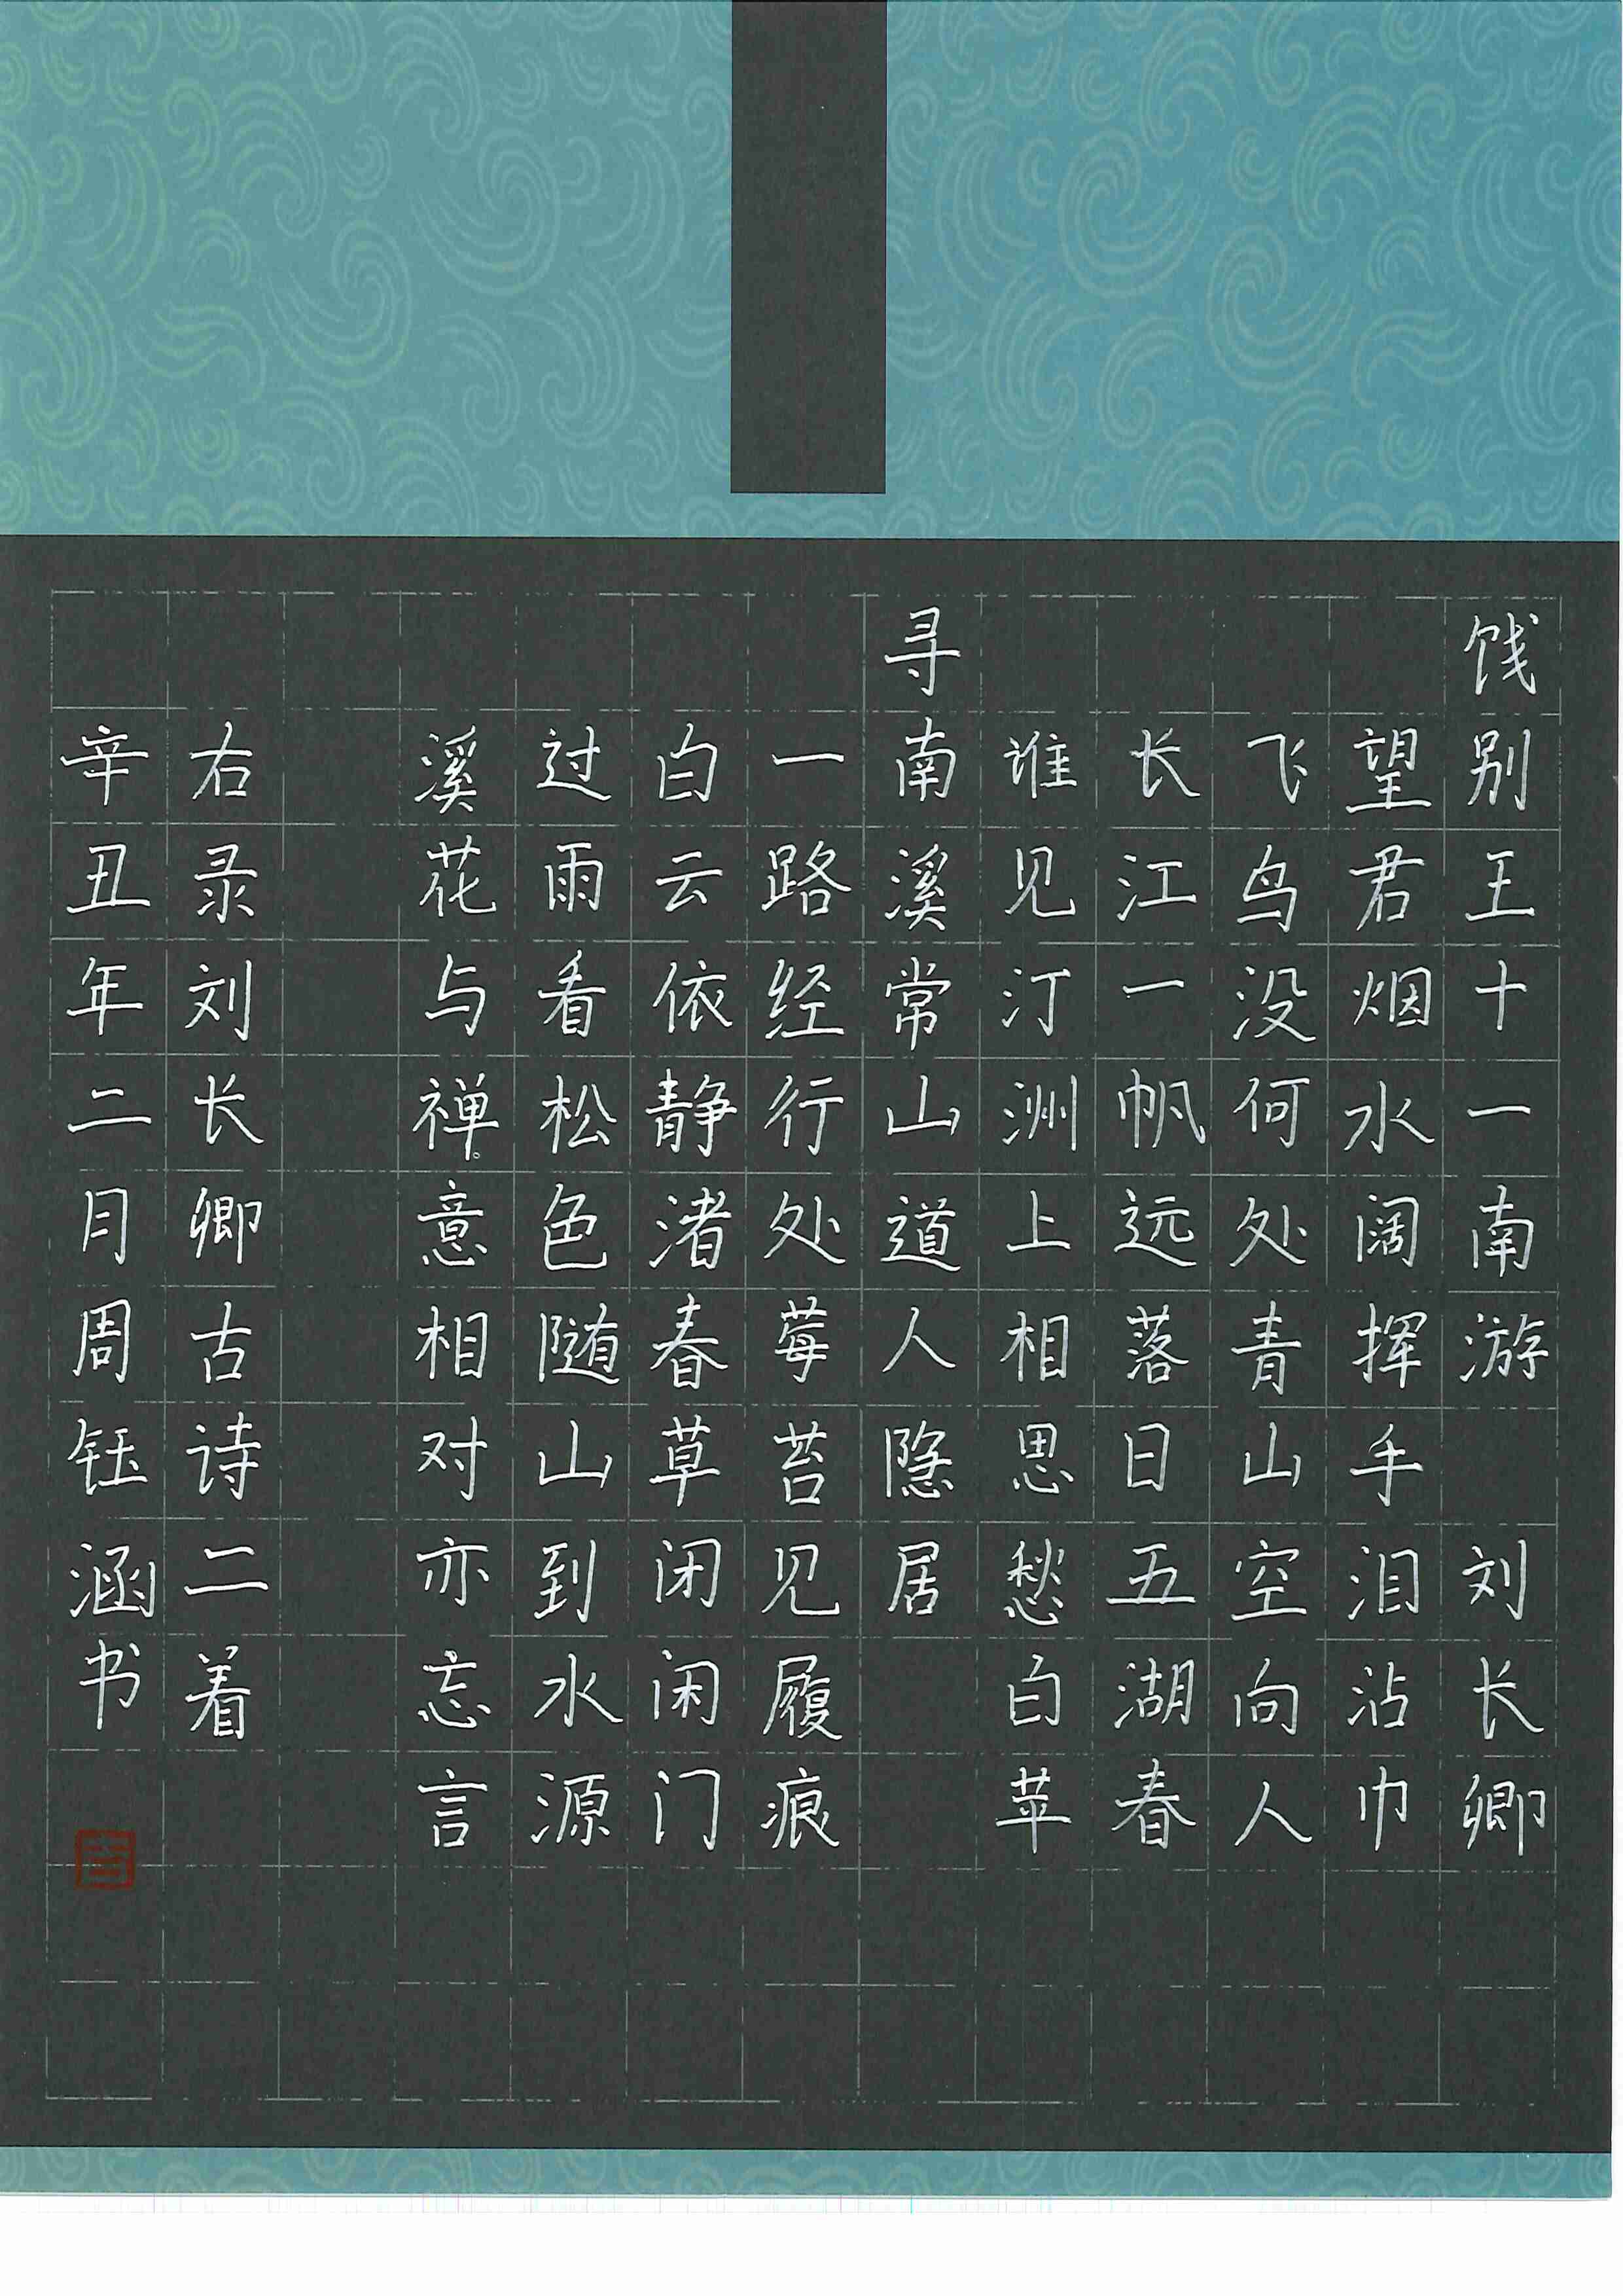 饯别王十一南游 刘长卿
望君烟水阔挥手泪沾巾
飞鸟没何处青山空向人
长江一帆远落日五湖春
谁见汀洲上相思愁白苹
寻南溪常山道人隐居
一路经行处莓苔见履痕
白云依静渚春草闭闲门
过雨看松色随山到水源
溪花与禅意相对亦忘言
右录刘长卿古诗二着
辛丑年二月周钰涵书